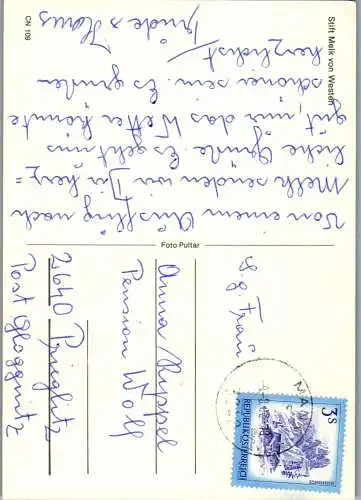 Stift Melk von Westen
CN 109
Von einem Ausflug nach
Melk senden wir Dir herz=
liche Grüße. Es geht uns
gut, nur das Wetter könnte
schöner sein. Es grüßen
herzlichst
Trude + Hans
Foto Pultar
S. g. Frau
Anna Rippel
Pension Wolf
2640 Prigglitz
Post Gloggnitz
3 S
REPUBLIK ÖSTERREICH